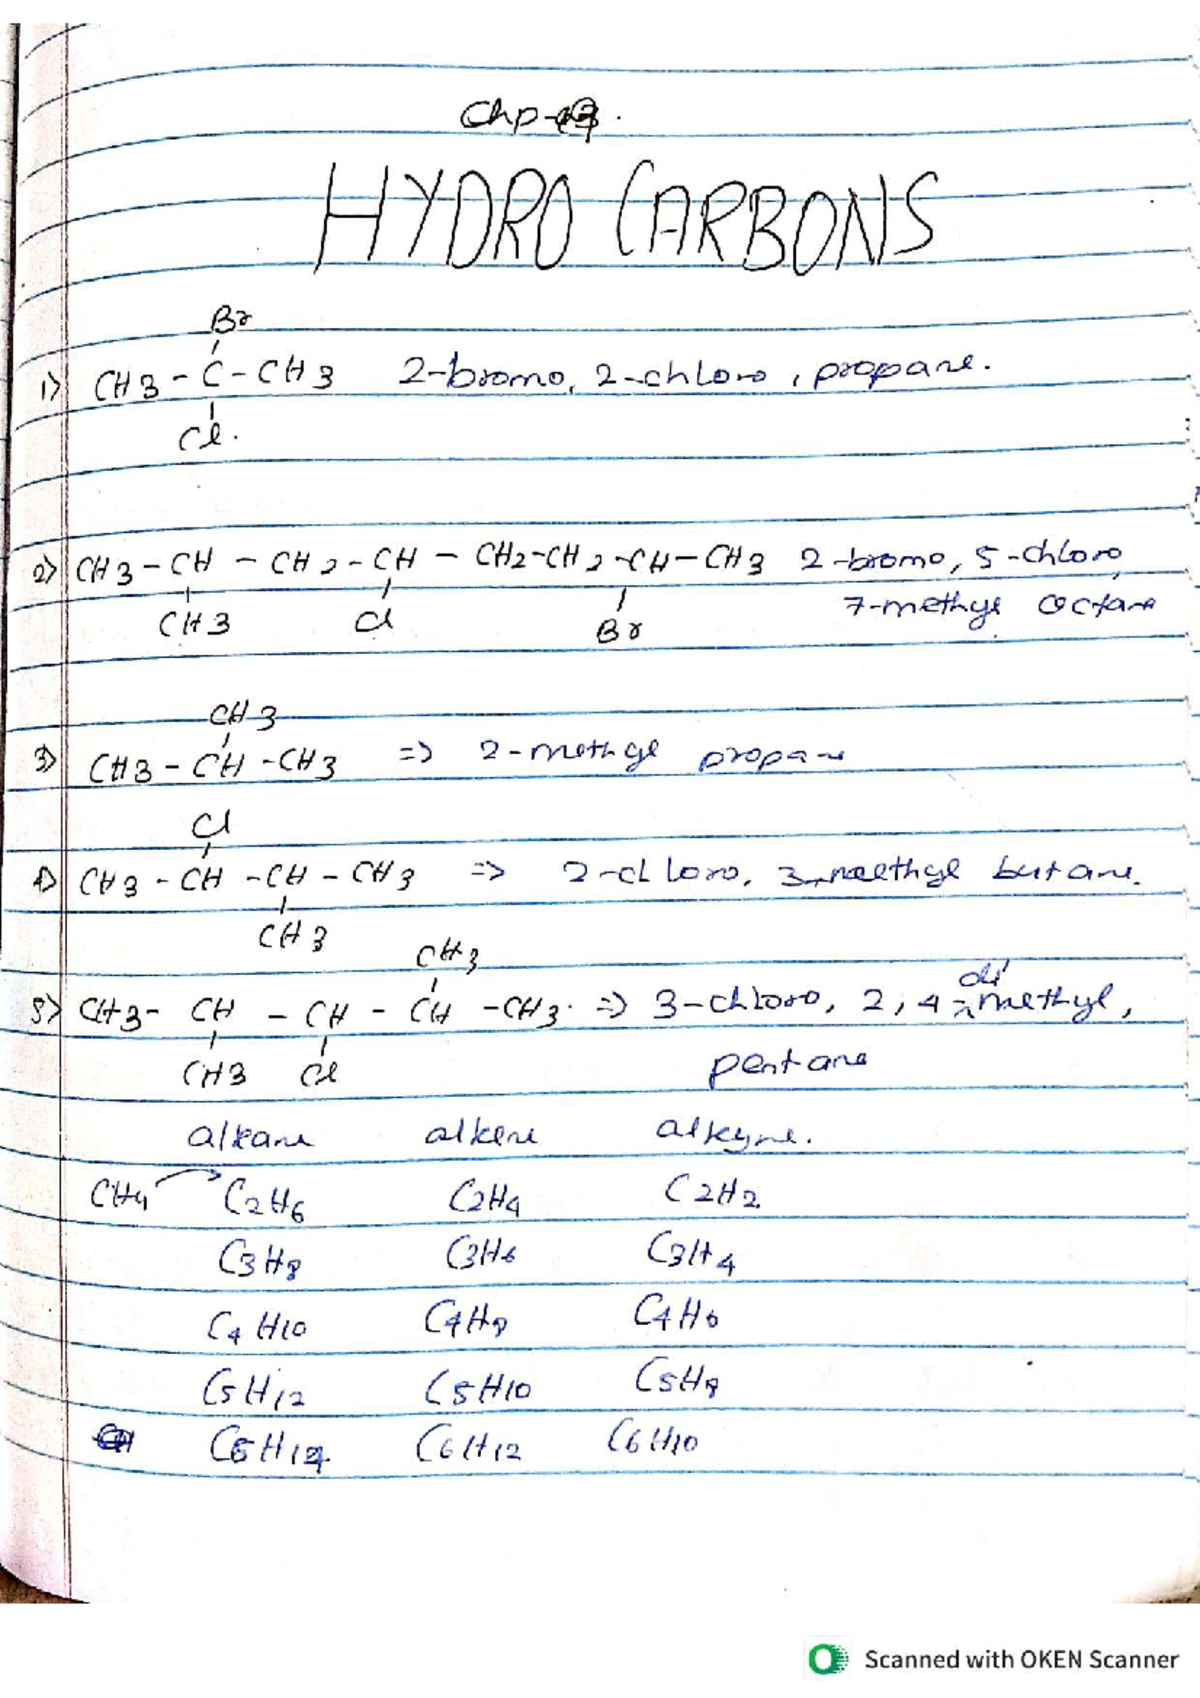 HYDRO CARBONS
Br
1) CH3 - C - CH3 2-bromo, 2-chloro, propane.
Cl.
2) CH3 - CH - CH2 - CH - CH2-CH2 - CH - CH3 2-bromo, 5-chloro,
CH3 Cl Br 7-methyl Octane
CH3
3) CH3 - CH - CH3 => 2-methyl propane
Cl
4) CH3 - CH - CH - CH3 => 2-chloro, 3-methyl butane.
CH3
CH3
5) CH3 - CH - CH - CH - CH3. => 3-chloro, 2, 4-dimethyl,
CH3 Cl pentane
alkane alkene alkyne.
CH4 C2H6 C2H4 C2H2
C3H8 C3H6 C3H4
C4H10 C4H8 C4H6
C5H12 C5H10 C5H8
C6H14 C6H12 C6H10
Scanned with OKEN Scanner